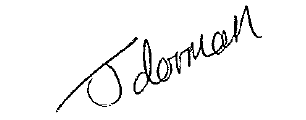 J dorman